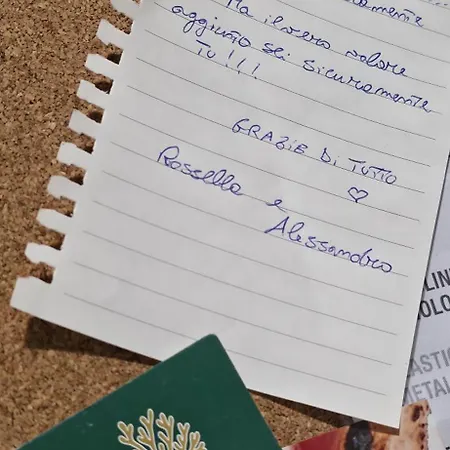 Ma il vero valore
aggiunto sei sicuramente
tu!!!
GRAZIE DI TUTTO
♡
Rossella e
Alessandro
LIN
OLO
ASTIC
METAL